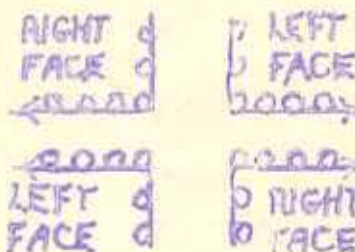 RIGHT
FACE
LEFT
FACE
LEFT
FACE
RIGHT
FACE